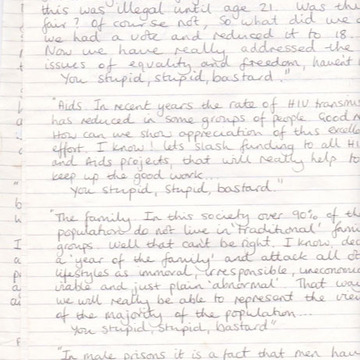 this was illegal until age 21. Was this
fair? Of course not, So what did we
we had a vote and reduced it to 18...
Now we have really addressed the
issues of equality and freedom, haven't
You stupid, stupid, bastard."
"Aids. In recent years the rate of HIV transm
has reduced in some groups of people. Good n
How can we show appreciation of this excelle
effort. I know! lets slash funding to all HI
and Aids projects, that will really help to
keep up the good work...
You stupid, stupid, bastard."
"The family. In this society over 90% of th
population do not live in 'traditional' fami
groups. Well that can't be right. I know, dec
a 'year of the family' and attack all ot
lifestyles as immoral, irresponsible, uneconom
viable and just plain 'abnormal'. That way
we will really be able to represent the view
of the majority of the population...
You stupid, stupid, bastard"
"In male prisons it is a fact that men have